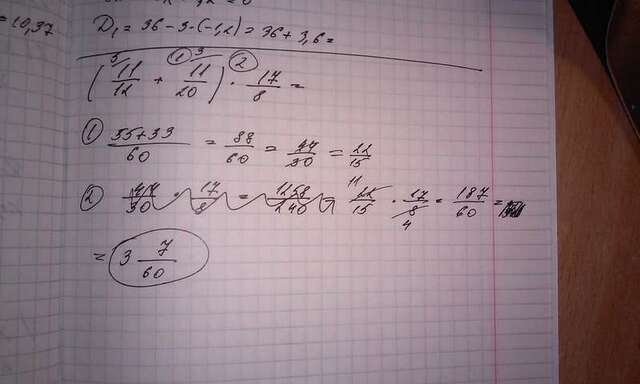 = 10,37
D₁ = 36 - 3 · (-1,2) = 36 + 3,6 =
(11/12 + 11/20) · 17/8 =
① 55 + 33/60 = 88/60 = 44/30 = 22/15
② 22/15 · 17/8 = 187/60 =
= 3 7/60